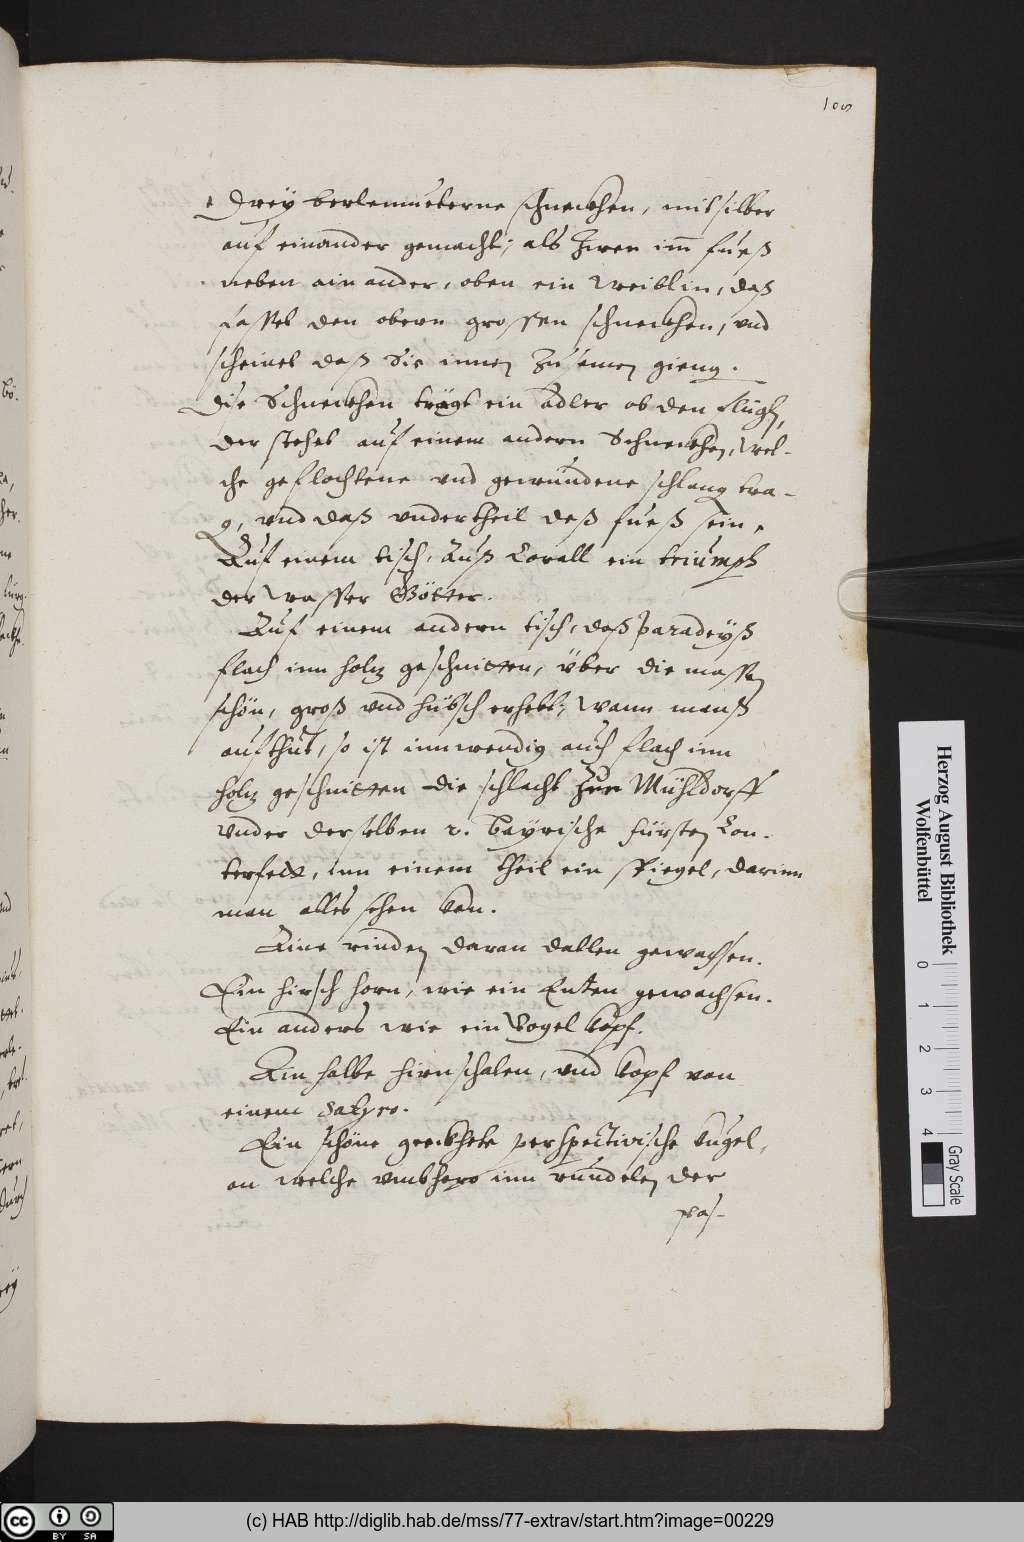 108
Drey berlemueterne schneckhen, mit silber
auf einander gemacht, als zwen im fueß
neben ain ander, oben ein weiblin, daß
fasset den obern grossen schneckhen, vnd
scheinet daß Sie innen zusamen gieng.
die Schneckhen trägt ein Adler ob den fligln,
der stehet auf einem andern Schneckhen, wel-
che geflochtene vnd gewundene schlang tra-
g, vnd daß vndertheil deß fueß sein.
Auf einem tisch, Auß Corall ein triumph
der Wasser Götter.
Auf einem andern tisch, daß paradeyß
flach inn holtz geschnitten, über die massen
schön, groß vnd hübsch erhebt, wann manß
aufthut, so ist innwendig auch flach inn
holtz geschnitten die schlacht zue Mühldorff
vnder derselben 2. bayrische fürsten Con-
terfeth, inn einem theil ein spiegel, darinn
man alles sehen kan.
Eine rinden daran dallen gewachsen.
Ein hirsch horn, wie ein Enten gewachsen.
Ein anders wie ein Vogel kopf.
Ein halbe hirnschalen, vnd kopf von
einem Satyro.
Ein schöne geeckhete perspectivische kugel,
an welche vmbhero inn rundelen der
pas-
Herzog August Bibliothek
Wolfenbüttel
0 1 2 3 4
Gray Scale
cc BY SA
(c) HAB http://diglib.hab.de/mss/77-extrav/start.htm?image=00229